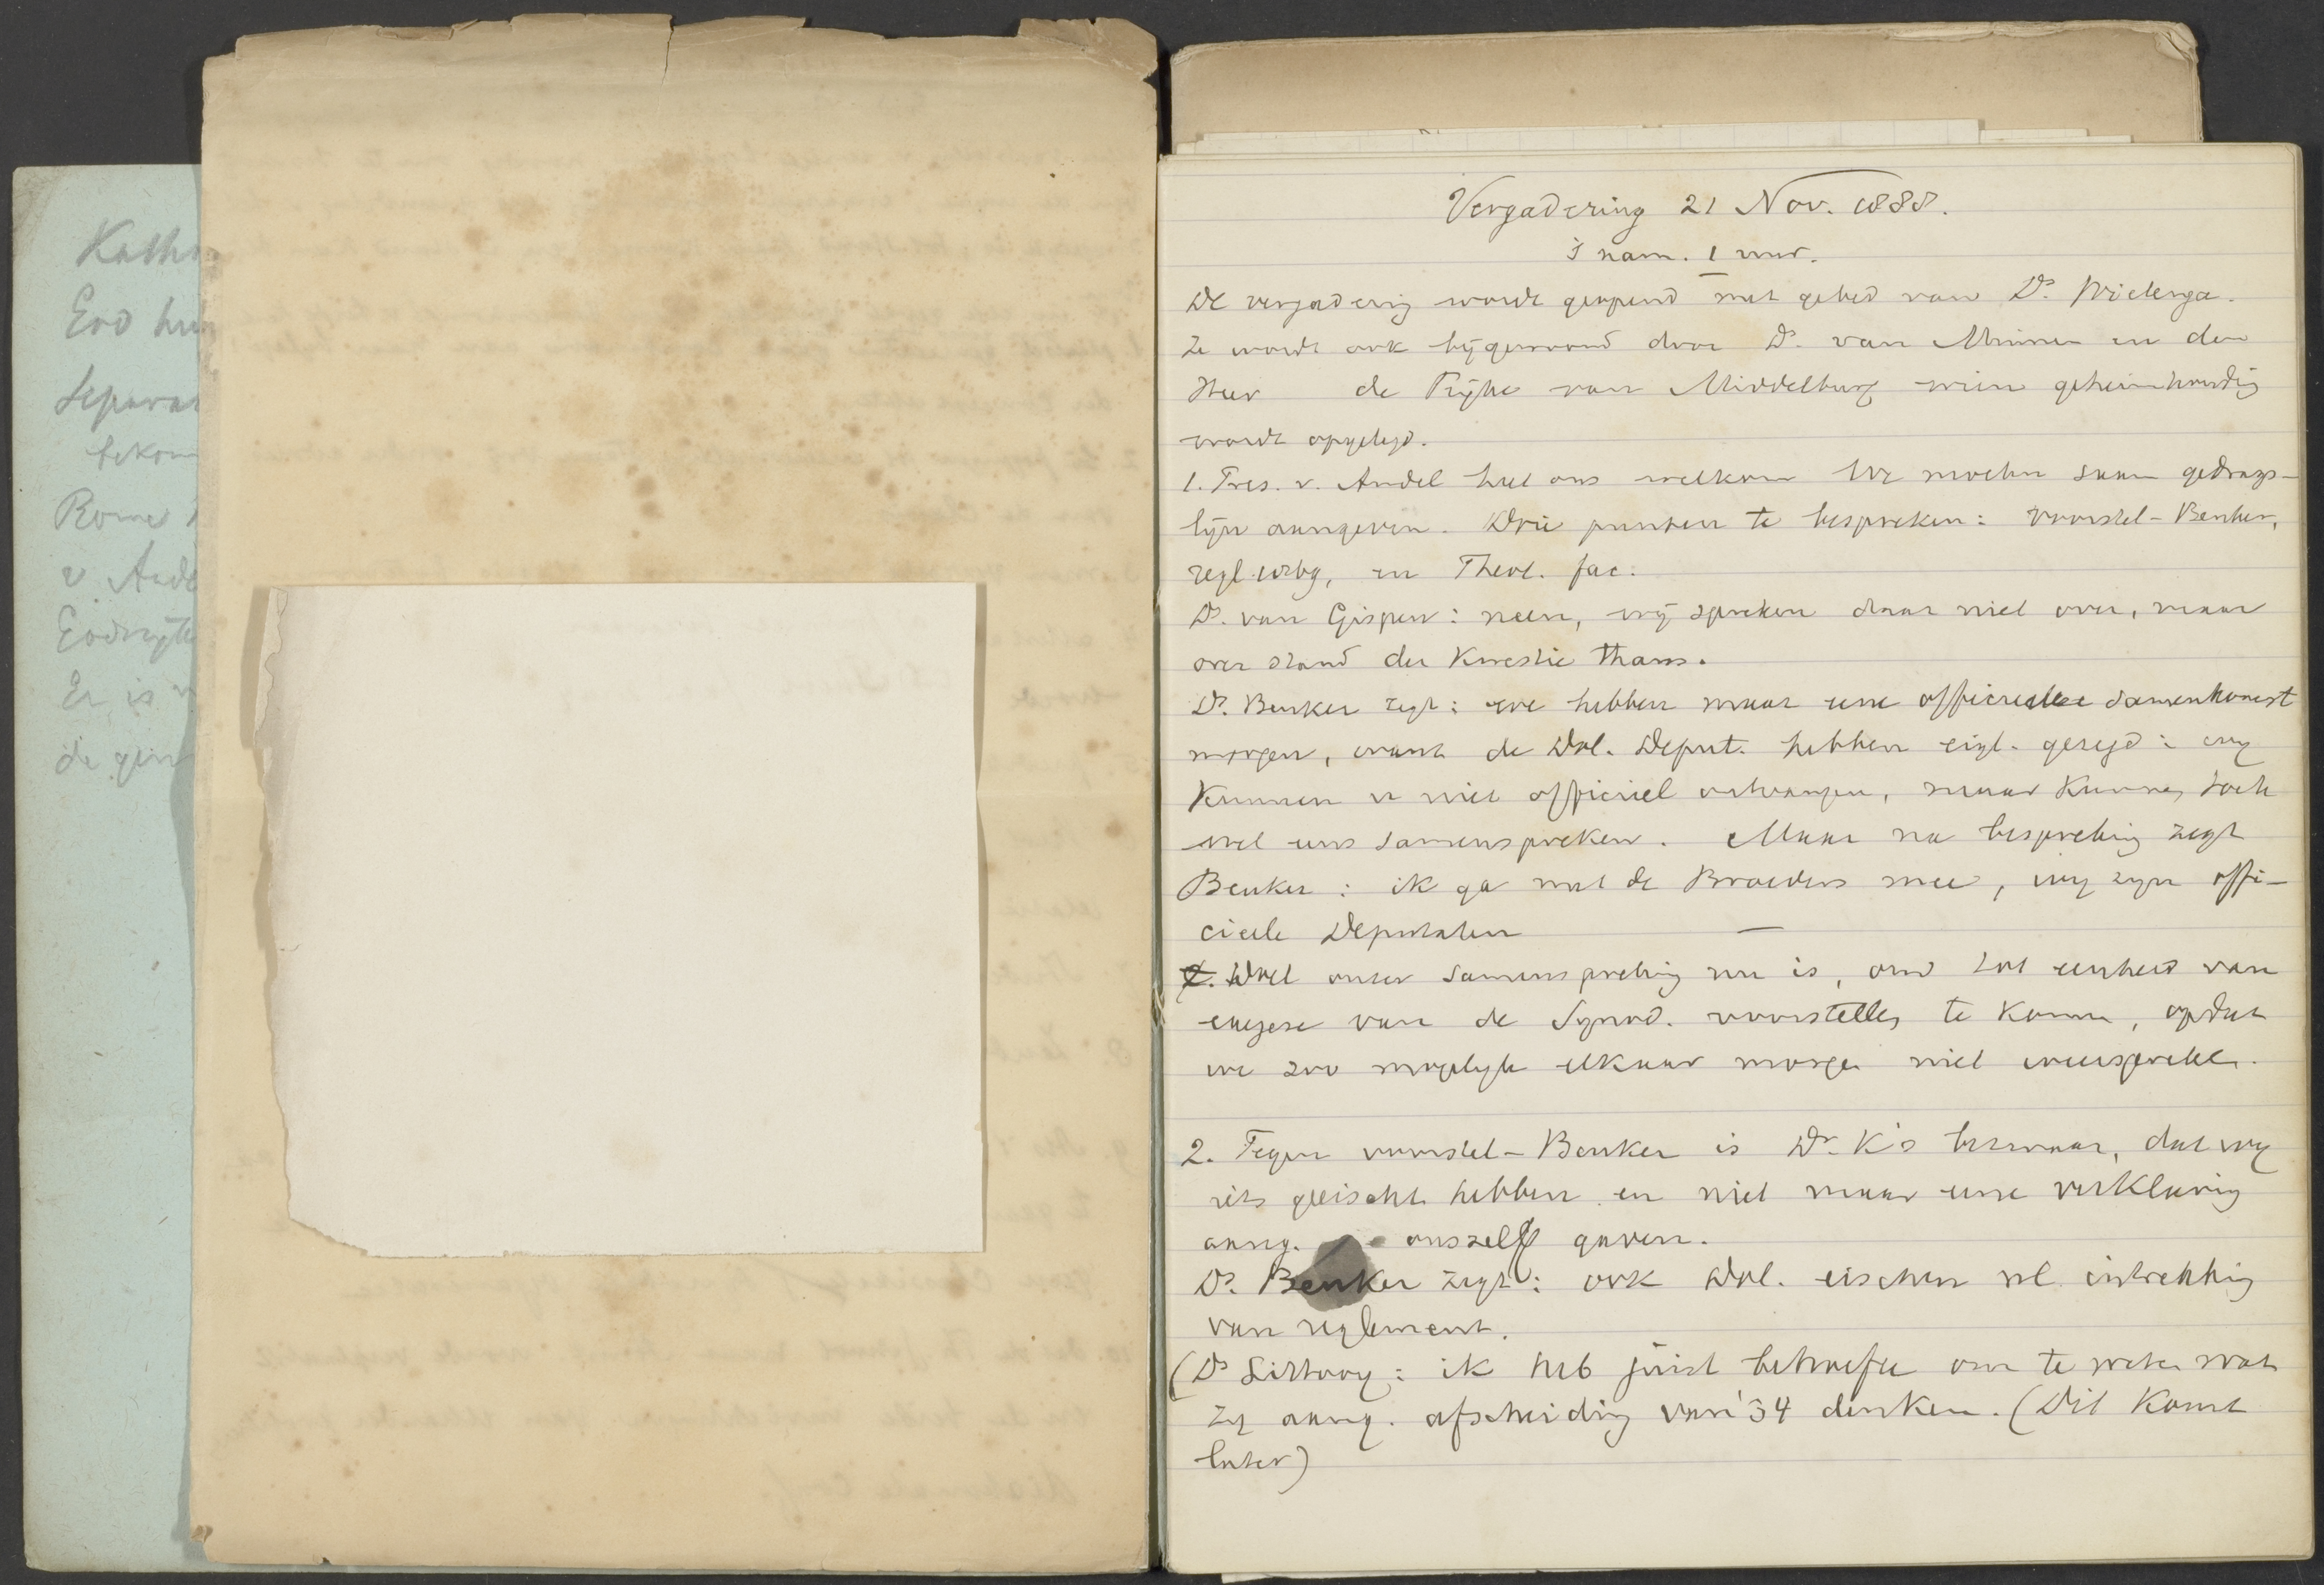 Katho
Eod hun
Separat
bekom
Rome
v. Ande
Er is
de gem
Vergadering 21 Nov. 1888.
's nam. 1 uur.
De vergadering wordt geopend met gebed van Ds. Wielenga.
Ze wordt ook bijgewoond door Ds. van Minnen en den
Heer de Pijke van Middelburg wien geheimhoudig
wordt opgelegd.
1. Pres. v. Andel heet ons welkom We moeten saam gedrags-
lijn aangeven. Drie punten te bespreken: voorstel-Beuker,
regl. en Theol. fac.
Ds. van Gispen: neen, wij spreken daar niet over, maar
over stand der kwestie thans.
Ds. Beuker zegt: we hebben maar eene officieele samenkomst
morgen, want de Dol. Deput. hebben eigl. gezegd: wij
kunnen u niet officieel ontvangen, maar kunnen toch
wel eens samenspreken. Maar na bespreking zegt
Beuker: ik ga met de Broeders mee, wij zijn offi-
cieele Deputaten
2. Doel onzer samenspreking nu is, om tot eenheid van
exegese van de Synod. voorstellen te komen, opdat
we zoo mogelijk elkaar morgen niet weerspreken.
2. Tegen voorstel-Beuker is Dr. K's bezwaar, dat wij
iets geëischt hebben en niet maar eene verklaring
aang. onszelf gaven.
Ds. Beuker zegt: ook Dol. eischen nl. intrekking
van reglement.
(Ds Littooy: ik heb juist behoefte om te weten wat
zij aang. afscheiding van '34 denken. (Dit komt
later)